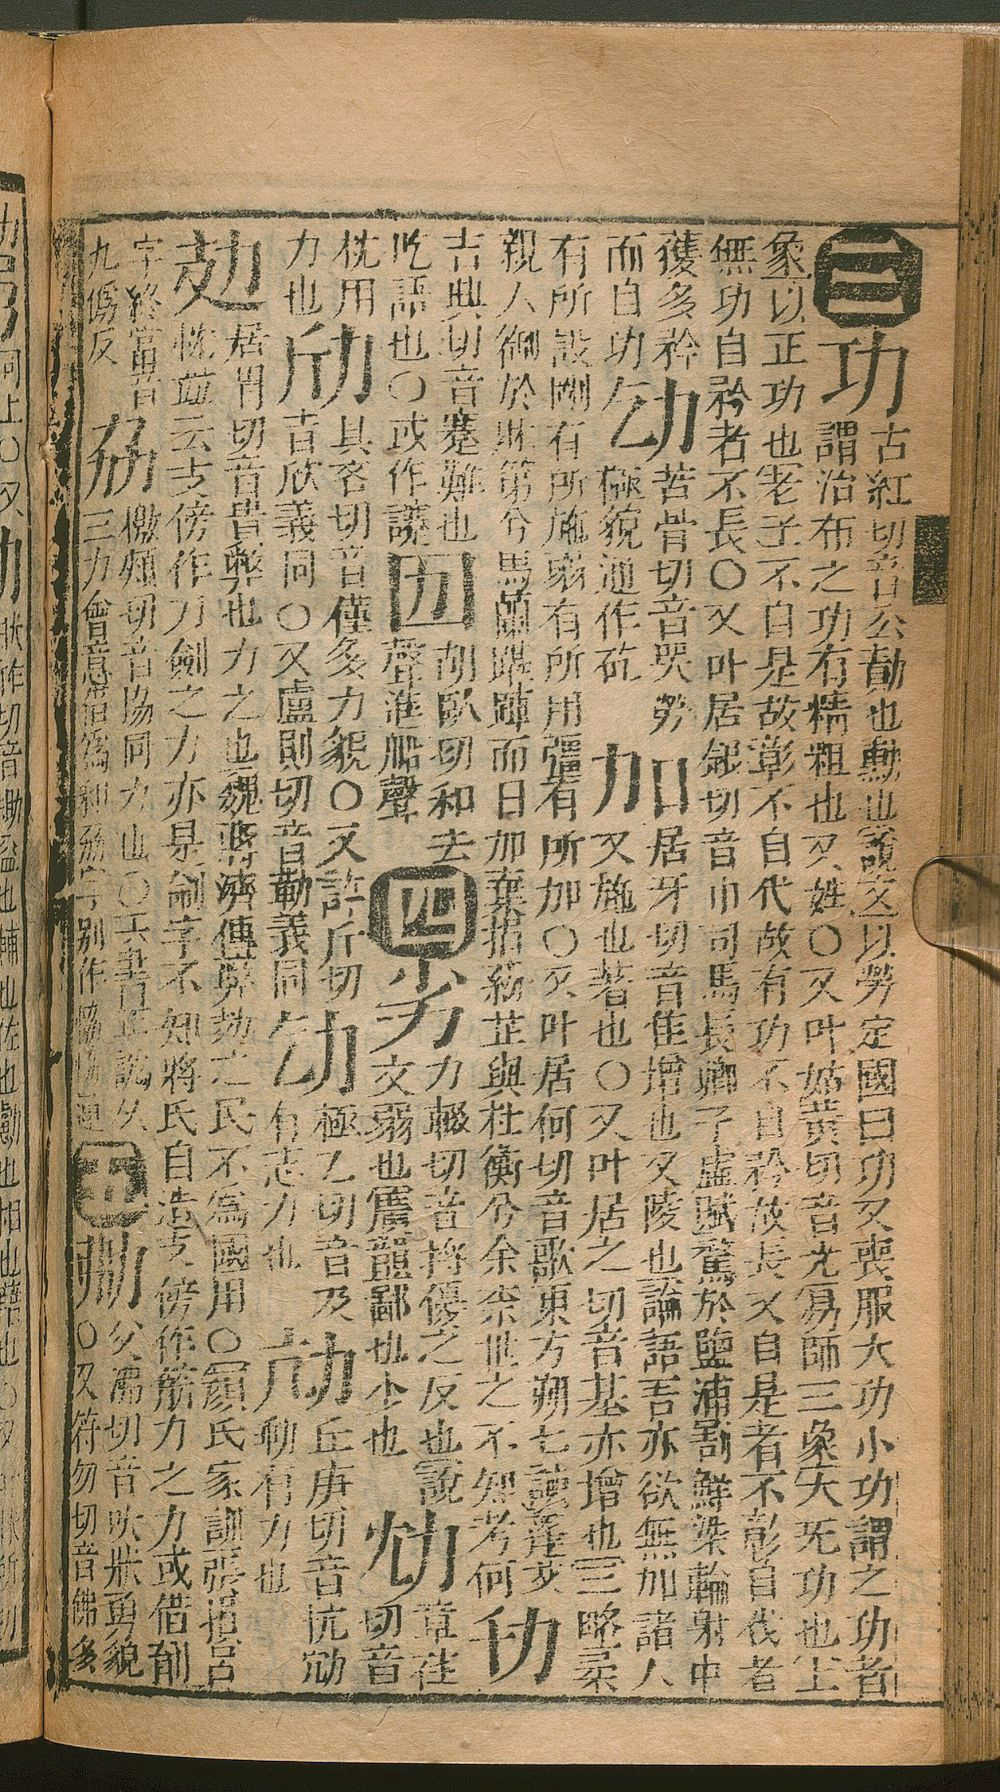 三
功
古紅切音公勳也勳也說文以勞定國曰功又喪服大功小功謂之功者
謂治布之功有精粗也又姓〇又叶姑黃切音光易師三象天无功也上
象以正功也老子不自是故彰不自代故有功不自矜故長又自是者不彰自伐者
無功自矜者不長〇又叶居銀切音巾司馬長卿子虛賦騖於鹽浦割鮮染輪射中
獲多矜
而自功
劥
苦骨切音哭勞
極貌通作矻
加
居牙切音佳增也又陵也論語吾亦欲無加諸人
又施也著也〇又叶居之切音基亦增也三略柔
有所設剛有所施弱有所用彊有所加〇又叶居何切音歌東方朔七諫蓬艾
親人御於牀第兮馬蘭踸踔而日加棄捐葯芷與杜衡兮余柰世之不知考何
劤
吉典切音蹇難也
吃語也〇或作謇
囜
胡臥切和去
聲淮船聲
四
劣
力輟切音捋優之反也說
文弱也廣韻鄙也少也
章荏
切音
枕用
力也
劤
其吝切音僅多力貌〇又許斤切
音欣義同〇又盧則切音勒義同
極乙切音及
有志力也
丘庚切音坑勍
勍有力也
居胃切音貴弊也力之也魏蔣濟傳弊攰之民不爲國用〇顏氏家訓張揖呂
忱竝云支傍作刀劍之刀亦是剞字不知蔣氏自造支傍作筋力之力或借剞
字終當音
九僞反
劦
檄頰切音協同力也〇六書正譌从
三力會意借爲和劦字別作協通
五
劮
父沸切音吠壯勇貌
〇又符勿切音佛多